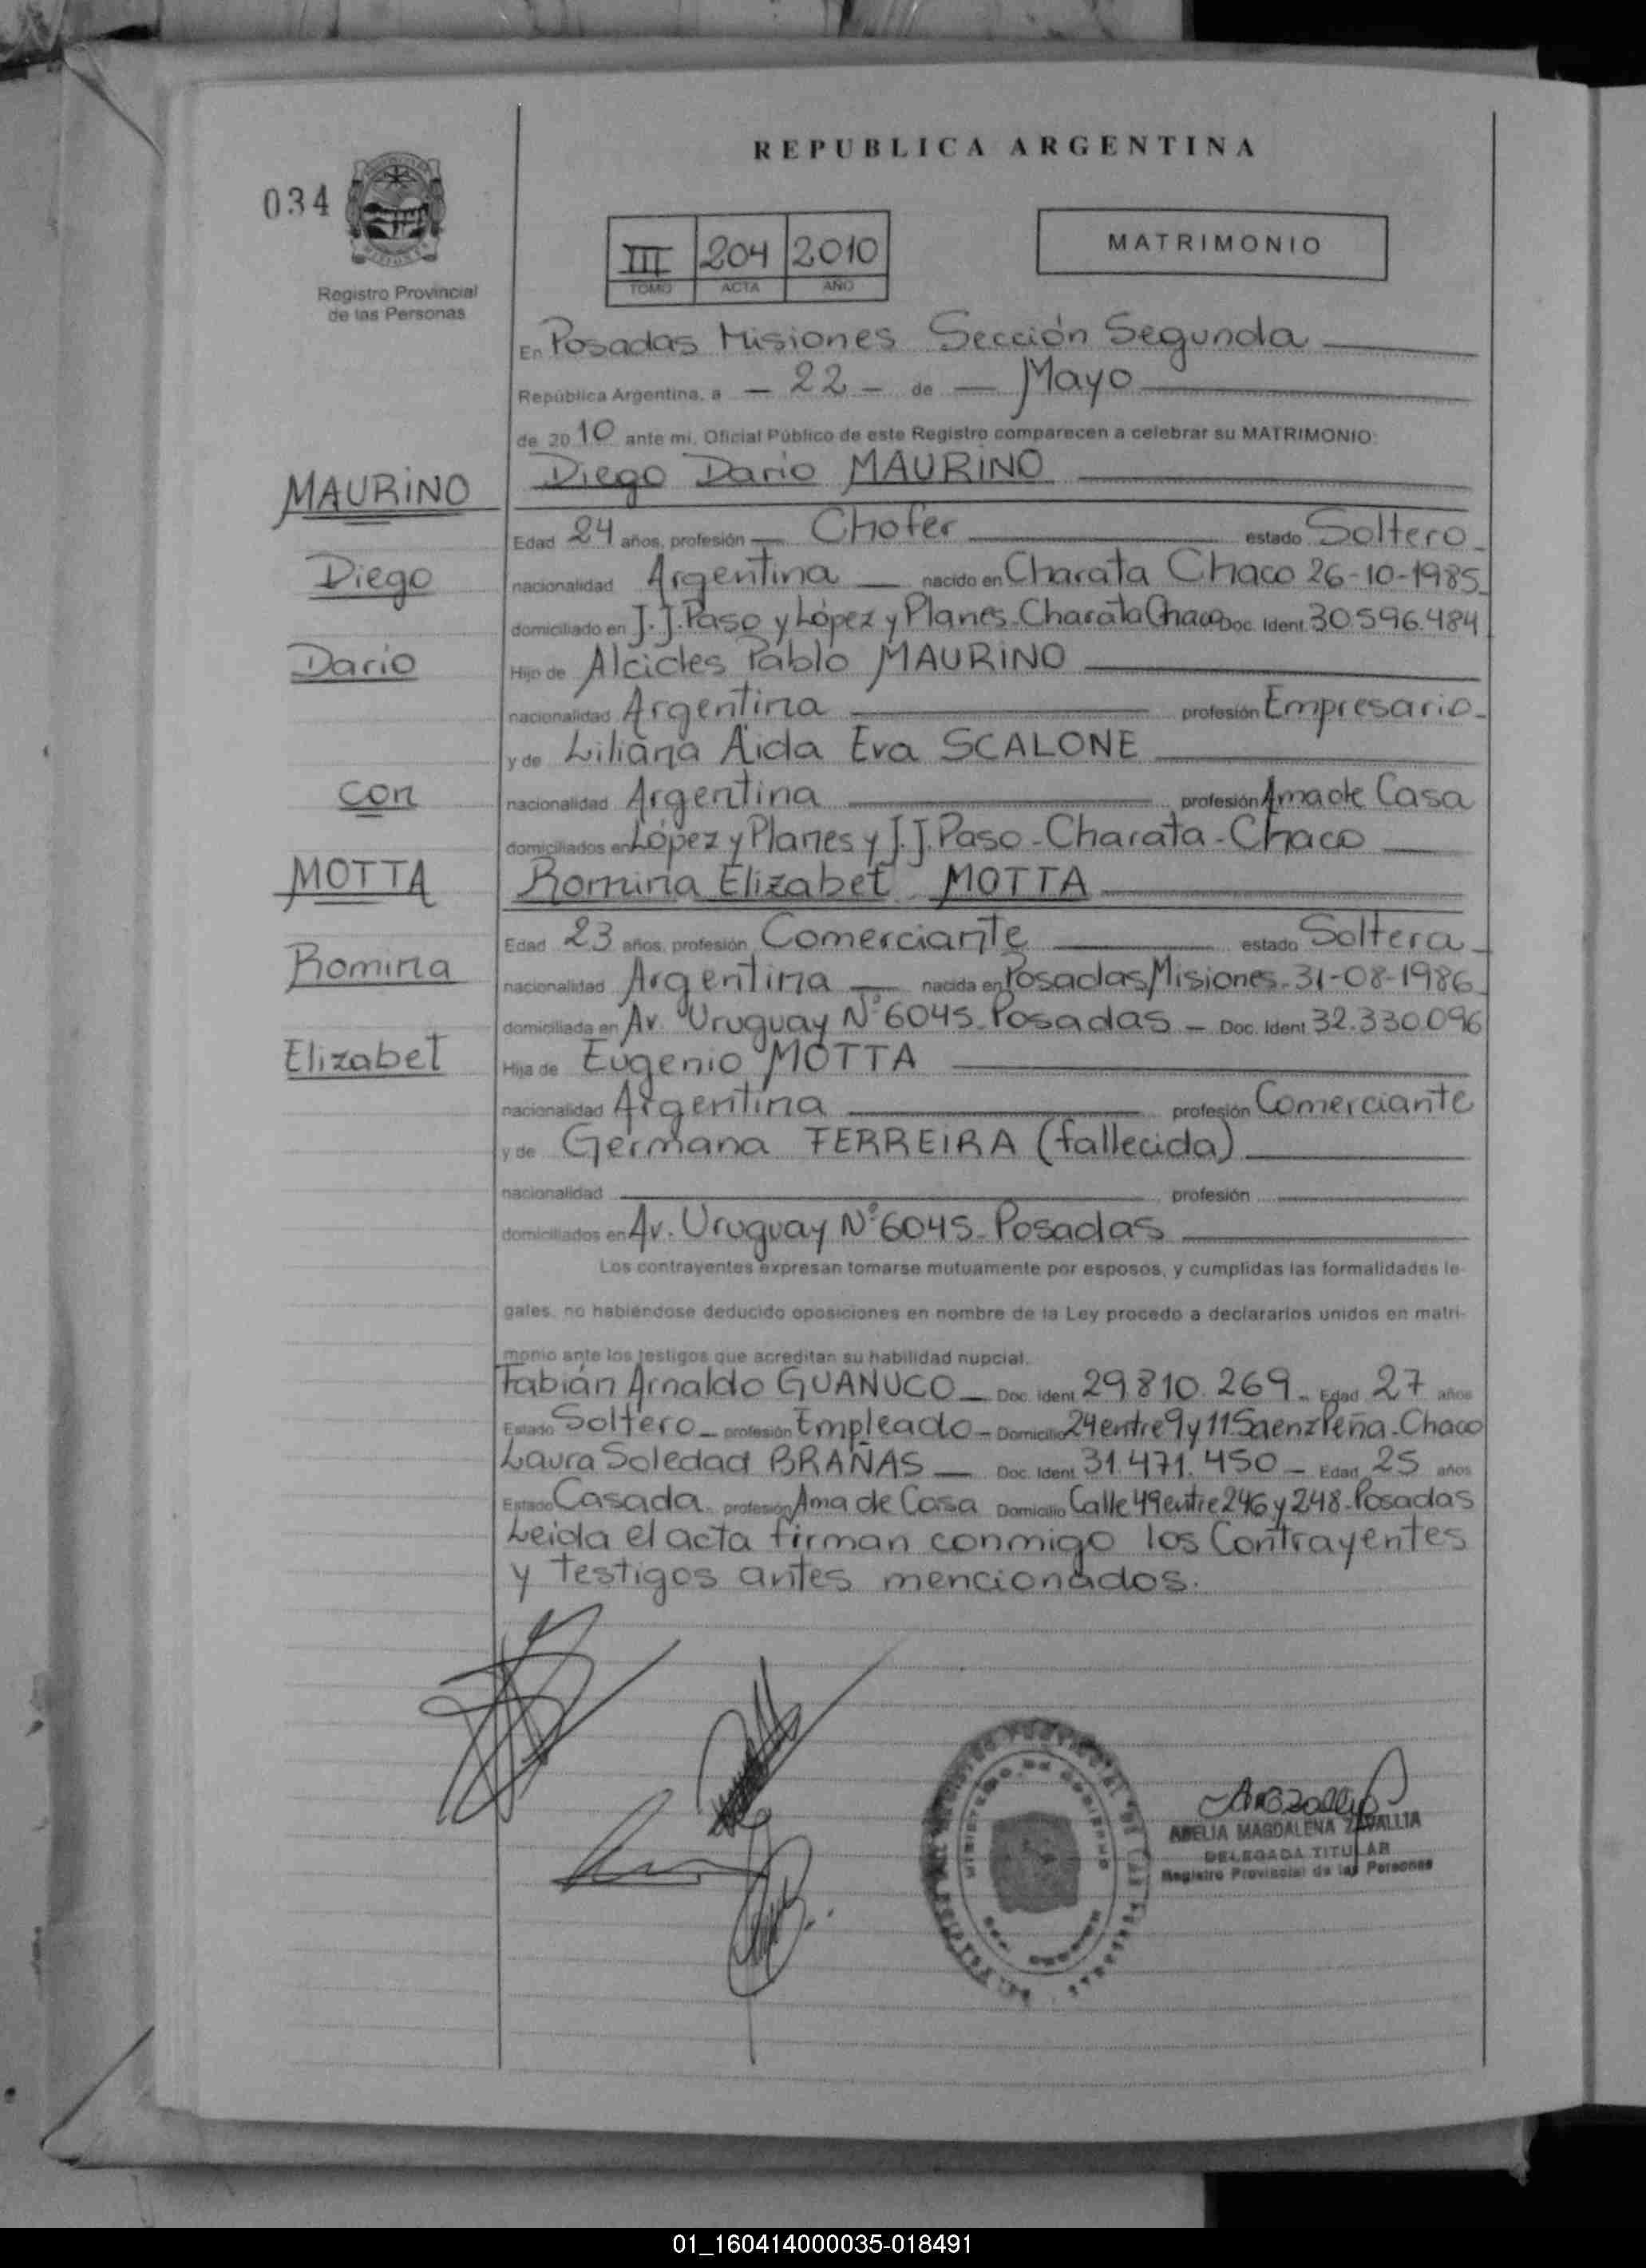 REPUBLICA ARGENTINA
034
Registro Provincial
de las Personas
III 204 2010
TOMO ACTA AÑO
MATRIMONIO
En Posadas Misiones Sección Segunda
República Argentina, a - 22 - de - Mayo
de 2010 ante mi, Oficial Público de este Registro comparecen a celebrar su MATRIMONIO:
MAURINO
Diego Dario MAURINO
Edad 24 años, profesión Chofer estado Soltero
Diego
nacionalidad Argentina nacido en Charata Chaco 26-10-1985
domiciliado en J.J. Paso y López y Planes - Charata Chaco Doc. Ident. 30.596.484
Dario
Hijo de Alcides Pablo MAURINO
nacionalidad Argentina profesión Empresario
y de Liliana Aida Eva SCALONE
con
nacionalidad Argentina profesión Ama de Casa
domiciliados en López y Planes y J.J. Paso - Charata - Chaco
MOTTA
Romina Elizabet MOTTA
Edad 23 años, profesión Comerciante estado Soltera
Romina
nacionalidad Argentina nacida en Posadas, Misiones - 31-08-1986
domiciliada en Av. Uruguay Nº 6045 - Posadas - Doc. Ident 32.330.096
Elizabet
Hija de Eugenio MOTTA
nacionalidad Argentina profesión Comerciante
y de Germana FERREIRA (fallecida)
nacionalidad profesión
domiciliados en Av. Uruguay Nº 6045 - Posadas
Los contrayentes expresan tomarse mutuamente por esposos, y cumplidas las formalidades le-
gales, no habiéndose deducido oposiciones en nombre de la Ley procedo a declararlos unidos en matri-
monio ante los testigos que acreditan su habilidad nupcial.
Fabián Arnaldo GUANUCO - Doc. Ident. 29.810.269 - Edad 27 años
Estado Soltero - profesión Empleado - Domicilio 24 entre 9 y 11 Saenz Peña - Chaco
Laura Soledad BRAÑAS - Doc. Ident. 31.471.450 - Edad 25 años
Estado Casada profesión Ama de Casa Domicilio Calle 49 entre 246 y 248 - Posadas
Leida el acta firman conmigo los Contrayentes
y testigos antes mencionados.
MINISTERIO DE GOBIERNO
MAGDALENA ZAVALLIA
DELEGADA TITULAR
Registro Provincial de las Personas
01_160414000035-018491